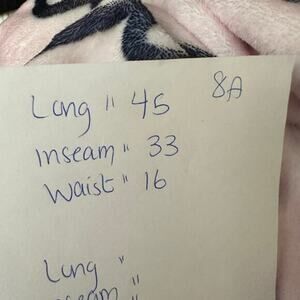 Long " 45 8A
Inseam " 33
Waist " 16
Long "
Inseam "